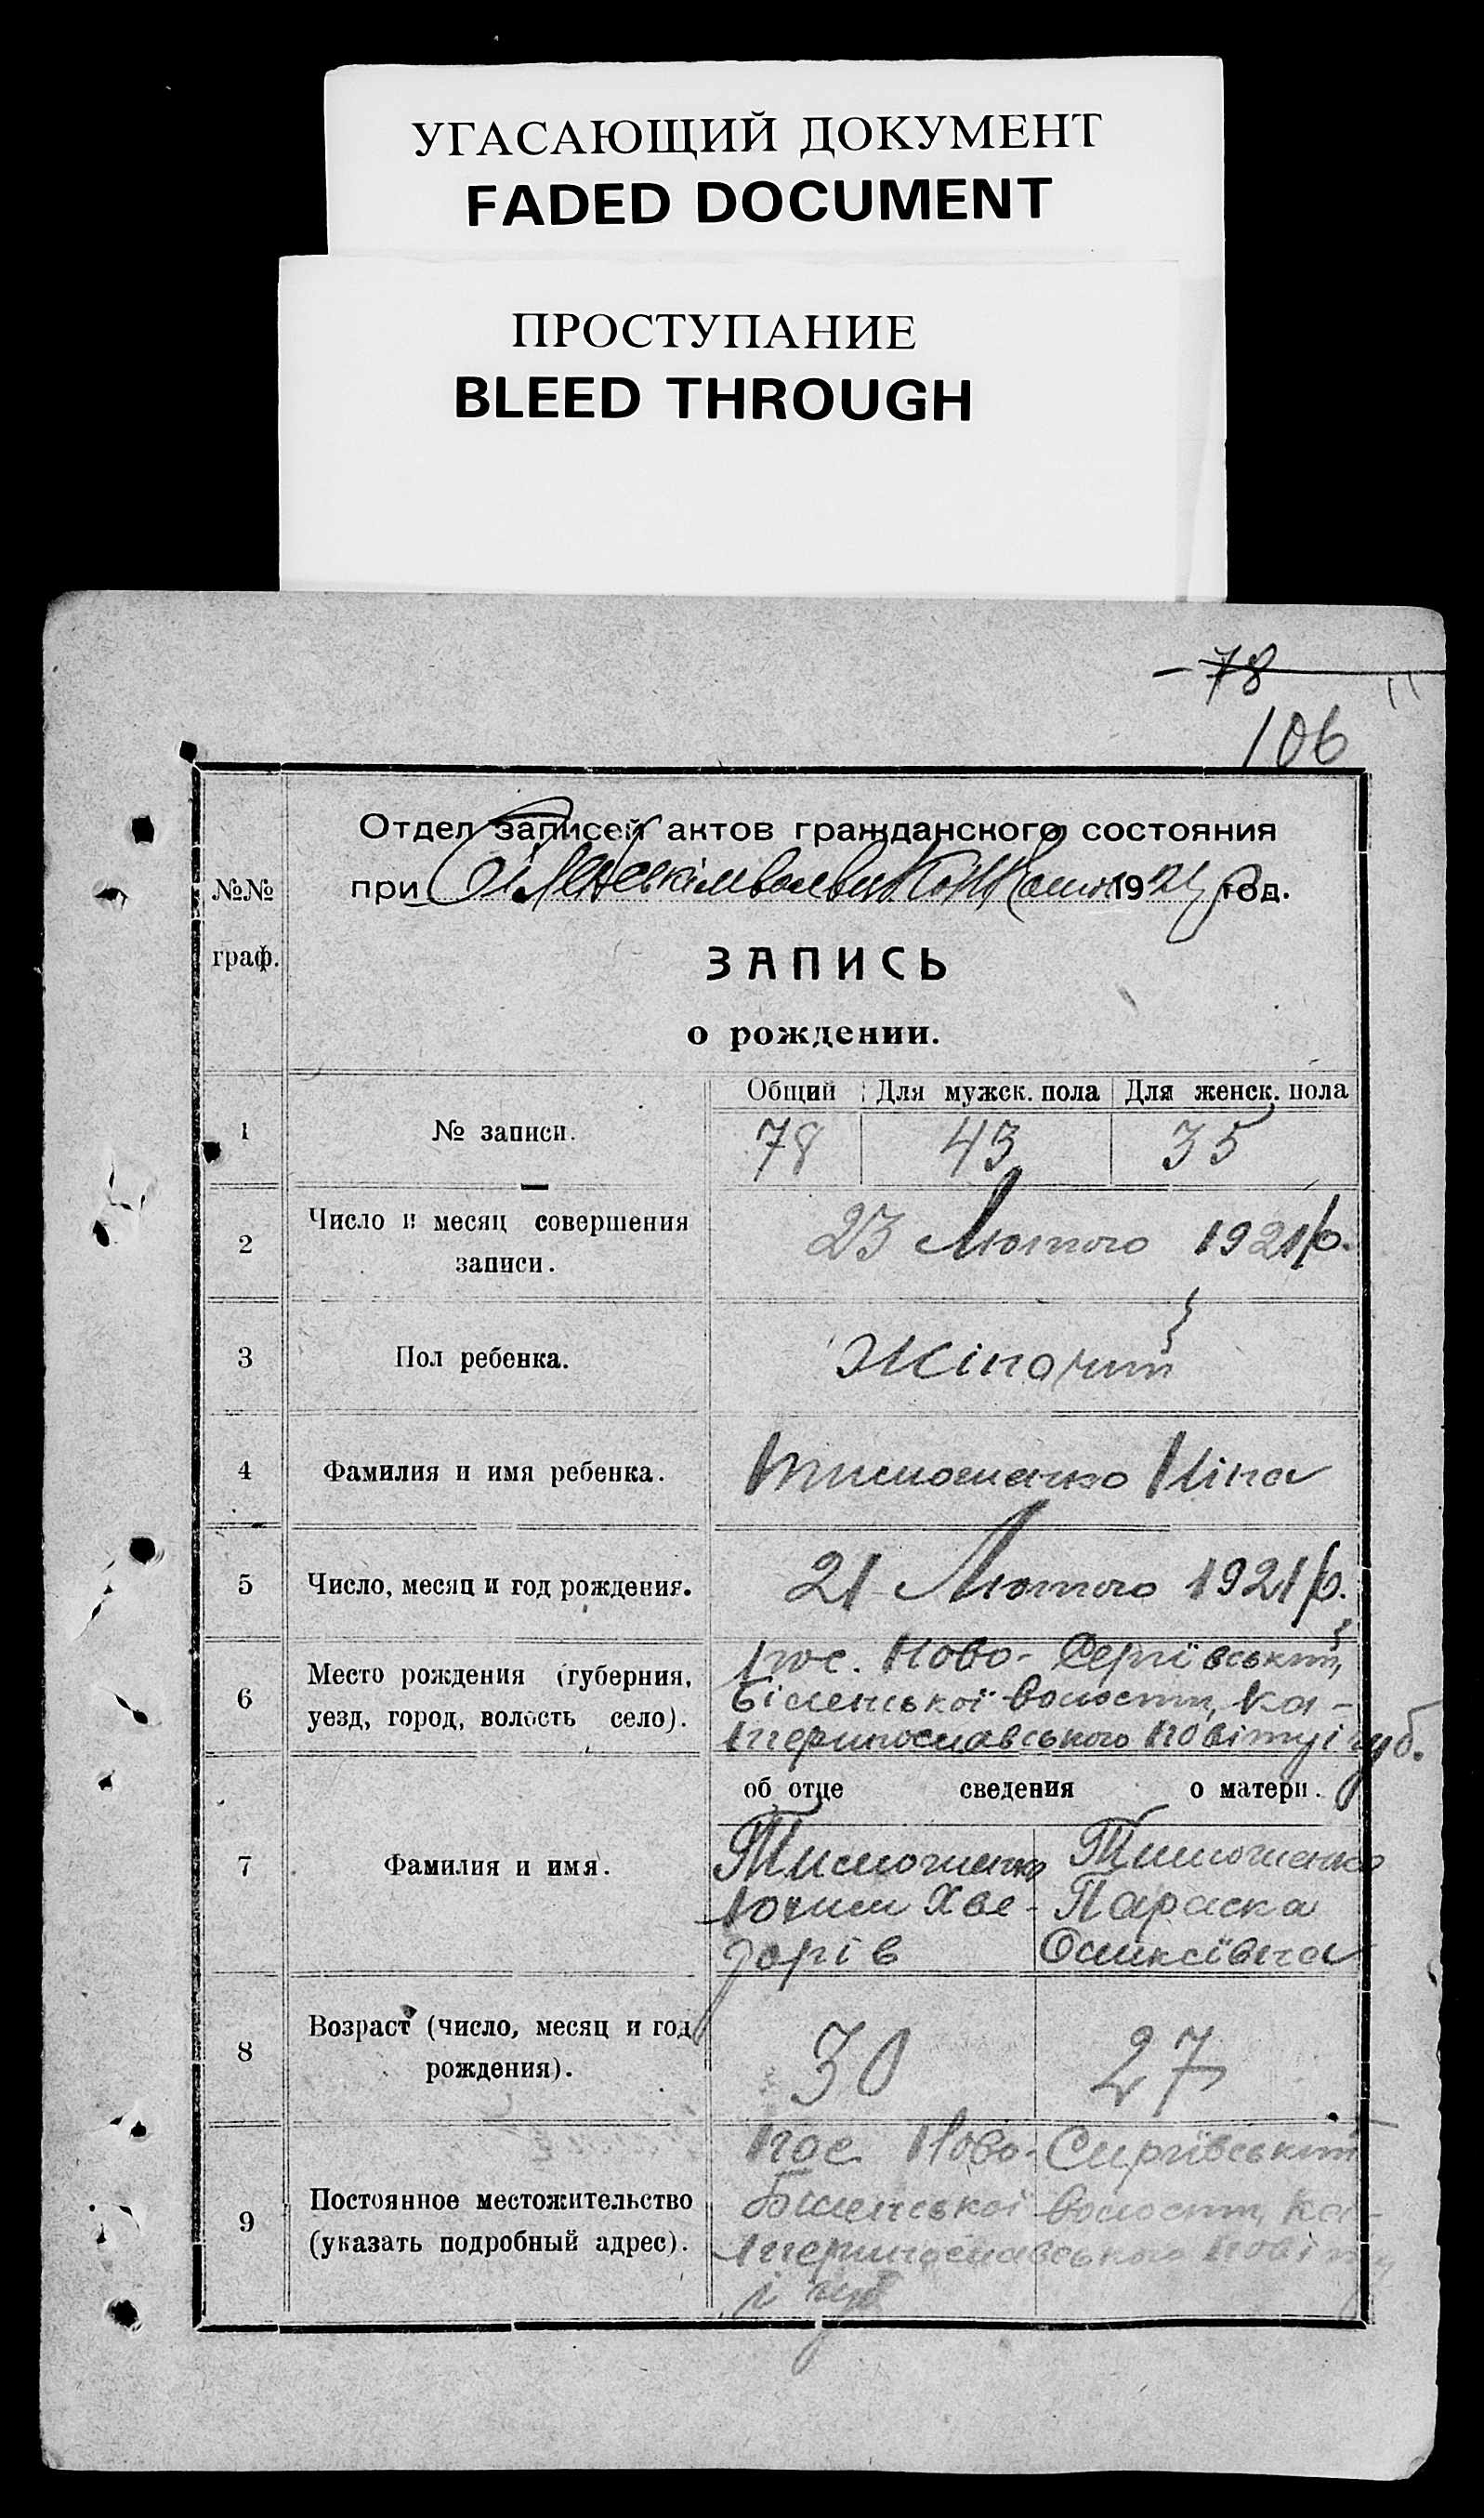 УГАСАЮЩИЙ ДОКУМЕНТ
FADED DOCUMENT
ПРОСТУПАНИЕ
BLEED THROUGH
78
106
Отдел записей актов гражданского состояния
№№ при 1921 год.
граф.
ЗАПИСЬ
о рождении.
Общий Для мужск. пола Для женск. пола
1 № записи. 78 43 35
2 Число и месяц совершения
записи.
23 Лютого 1921 р.
3 Пол ребенка. Жіночий
4 Фамилия и имя ребенка. Тимошенко Ніна
5 Число, месяц и год рождения. 21 Лютого 1921 р.
6 Место рождения (губерния,
уезд, город, волость село).
пос. Ново-Сергіївський,
Біленської волости, Ка-
теринославського повіту і губ.
об отце сведения о матери.
7 Фамилия и имя.
Тимошенко Тимошенко
Юхим Хве- Параска
дорів Оликсіївна
8 Возраст (число, месяц и год
рождения).
30 27
9 Постоянное местожительство
(указать подробный адрес).
пос. Ново-Сиргіївський
Біленської волости, Ка-
теринославського повіту
і губ